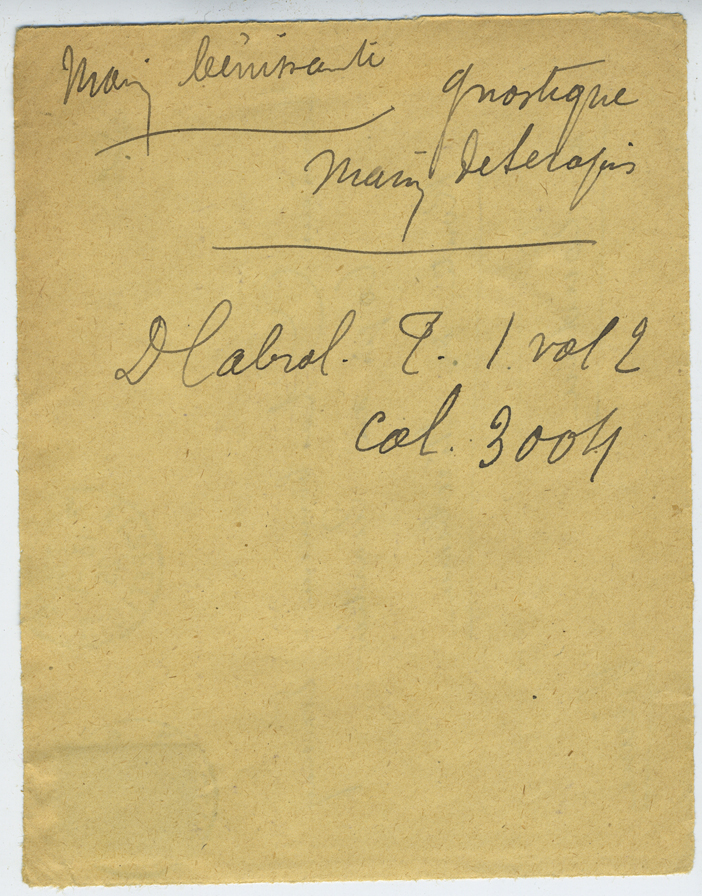 Main bénissante
gnostique
Main de Serapis
D Cabrol. T. 1. vol 2
col. 3004